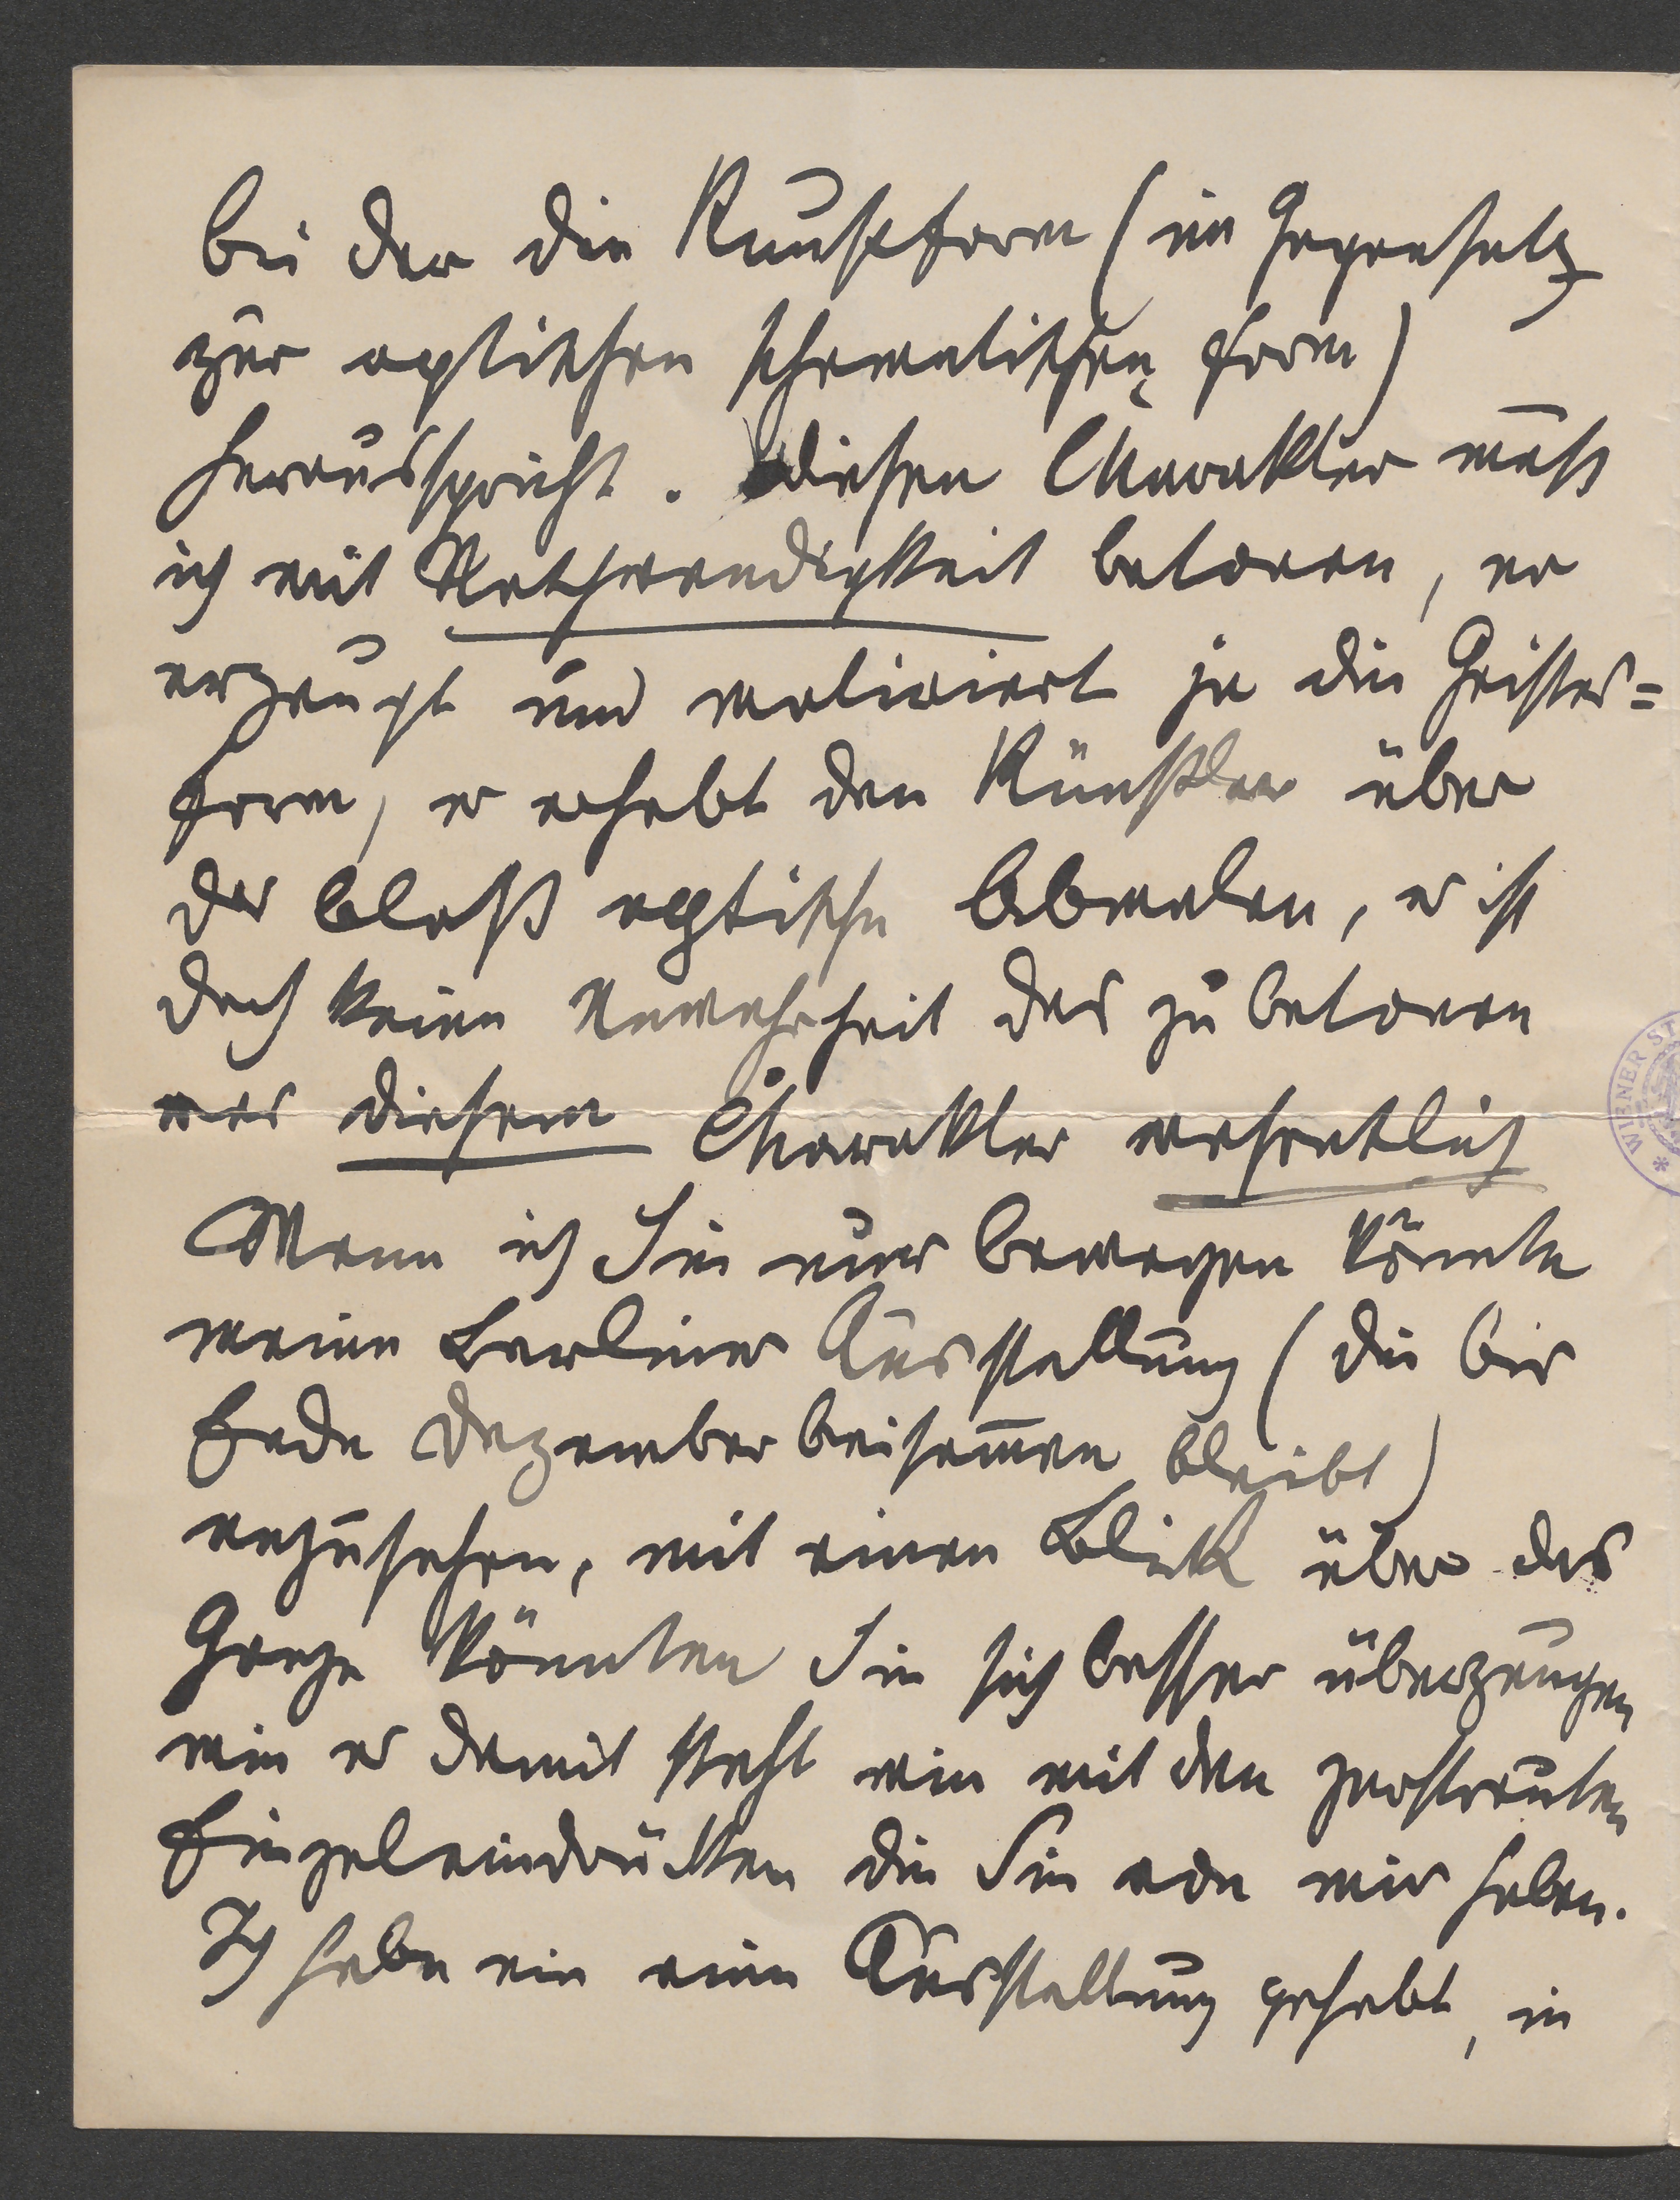 bei der die Kunstform (im Gegensatz
zur optischen schematischen Form)
herausspricht. Diesen Charakter muß
ich mit Nothwendigkeit betonen, er
erzeugt und motiviert ja die Geistes=
form, er erhebt den Künstler über
das bloß optische Abmalen, er ist
doch keine Unwahrheit das zu betonen
was diesem Charakter wesentlich
Wenn ich Sie nur bewegen könnte
meine Berliner Ausstellung (die bis
Ende Dezember beisam̄en bleibt)
anzusehen, mit einen Blick über das
Ganze könnten Sie sich besser überzeugen
wie es damit steht wie mit den zerstreuten
Einzeleindrücken die Sie von mir haben.
Ich habe nie eine Ausstellung gehabt, in
WIENER ST